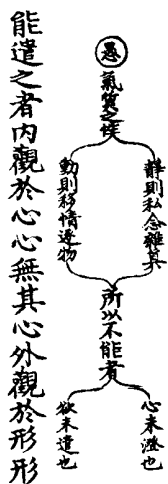 愚
氣質之
靜則私念雜
動則移情逐物
所以不能者
心未澄也
欲未遣也
能遣之者內觀於心心無其心外觀於形形